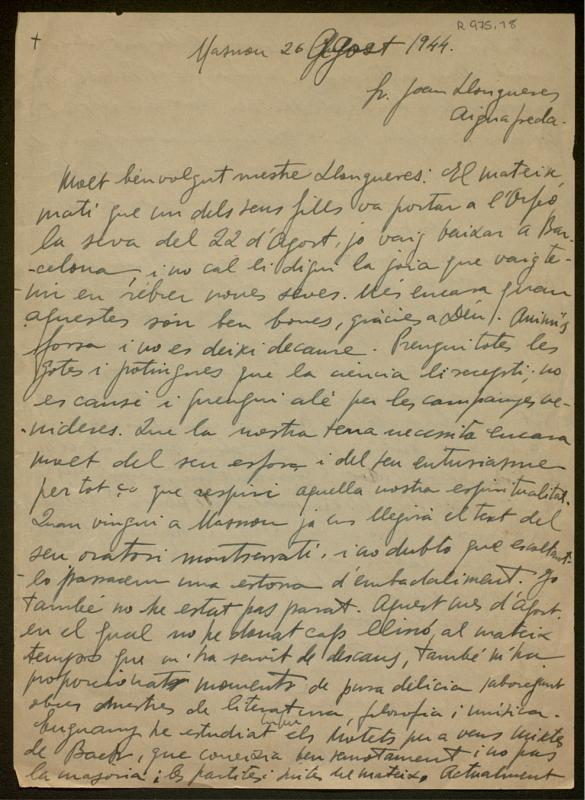 R 975.18
+
Masnou 26 Agost 1944.
Sr. Joan Llongueres
Aiguafreda.
Molt benvolgut mestre Llongueres: El mateix
matí que un dels seus fills va portar a l'Orfó
la seva del 22 d'Agost, jo vaig baixar a Bar-
-celona, i no cal li digui la joia que vaig te-
-nir en rebrer noves seves. Més encara quan
aquestes són ben bones, gràcies a Déu. Animis
força i no es deixi decaure. Prengui totes les
gotes i potingues que la ciencia li recepti; no
es cansi i prengui alè per les campanyes ve-
-nideres. Que la nostra terra necessita encara
molt del seu esforç i del seu entusiasme
per tot ço que respiri aquella nostra espiritualitat.
Quan vingui a Masnou ja ens llegirà el text del
seu oratori montserratí, i no dubto que escoltant-
-lo passarem una estona d'embadaliment. Jo
també no he estat pas parat. Aquest mes d'Agost
en el qual no he donat cap lliçó, al mateix
temps que m'ha servit de descans, també m'ha
proporcionat moments de pura delicia saborejant
obres mestres de literatura, filosofia i música.
Enguany he estudiat els Motets per a veus mixtes
de Bach, que coneixia ben remotament i no pas
la majoria; les partites i suites del mateix. Actualment